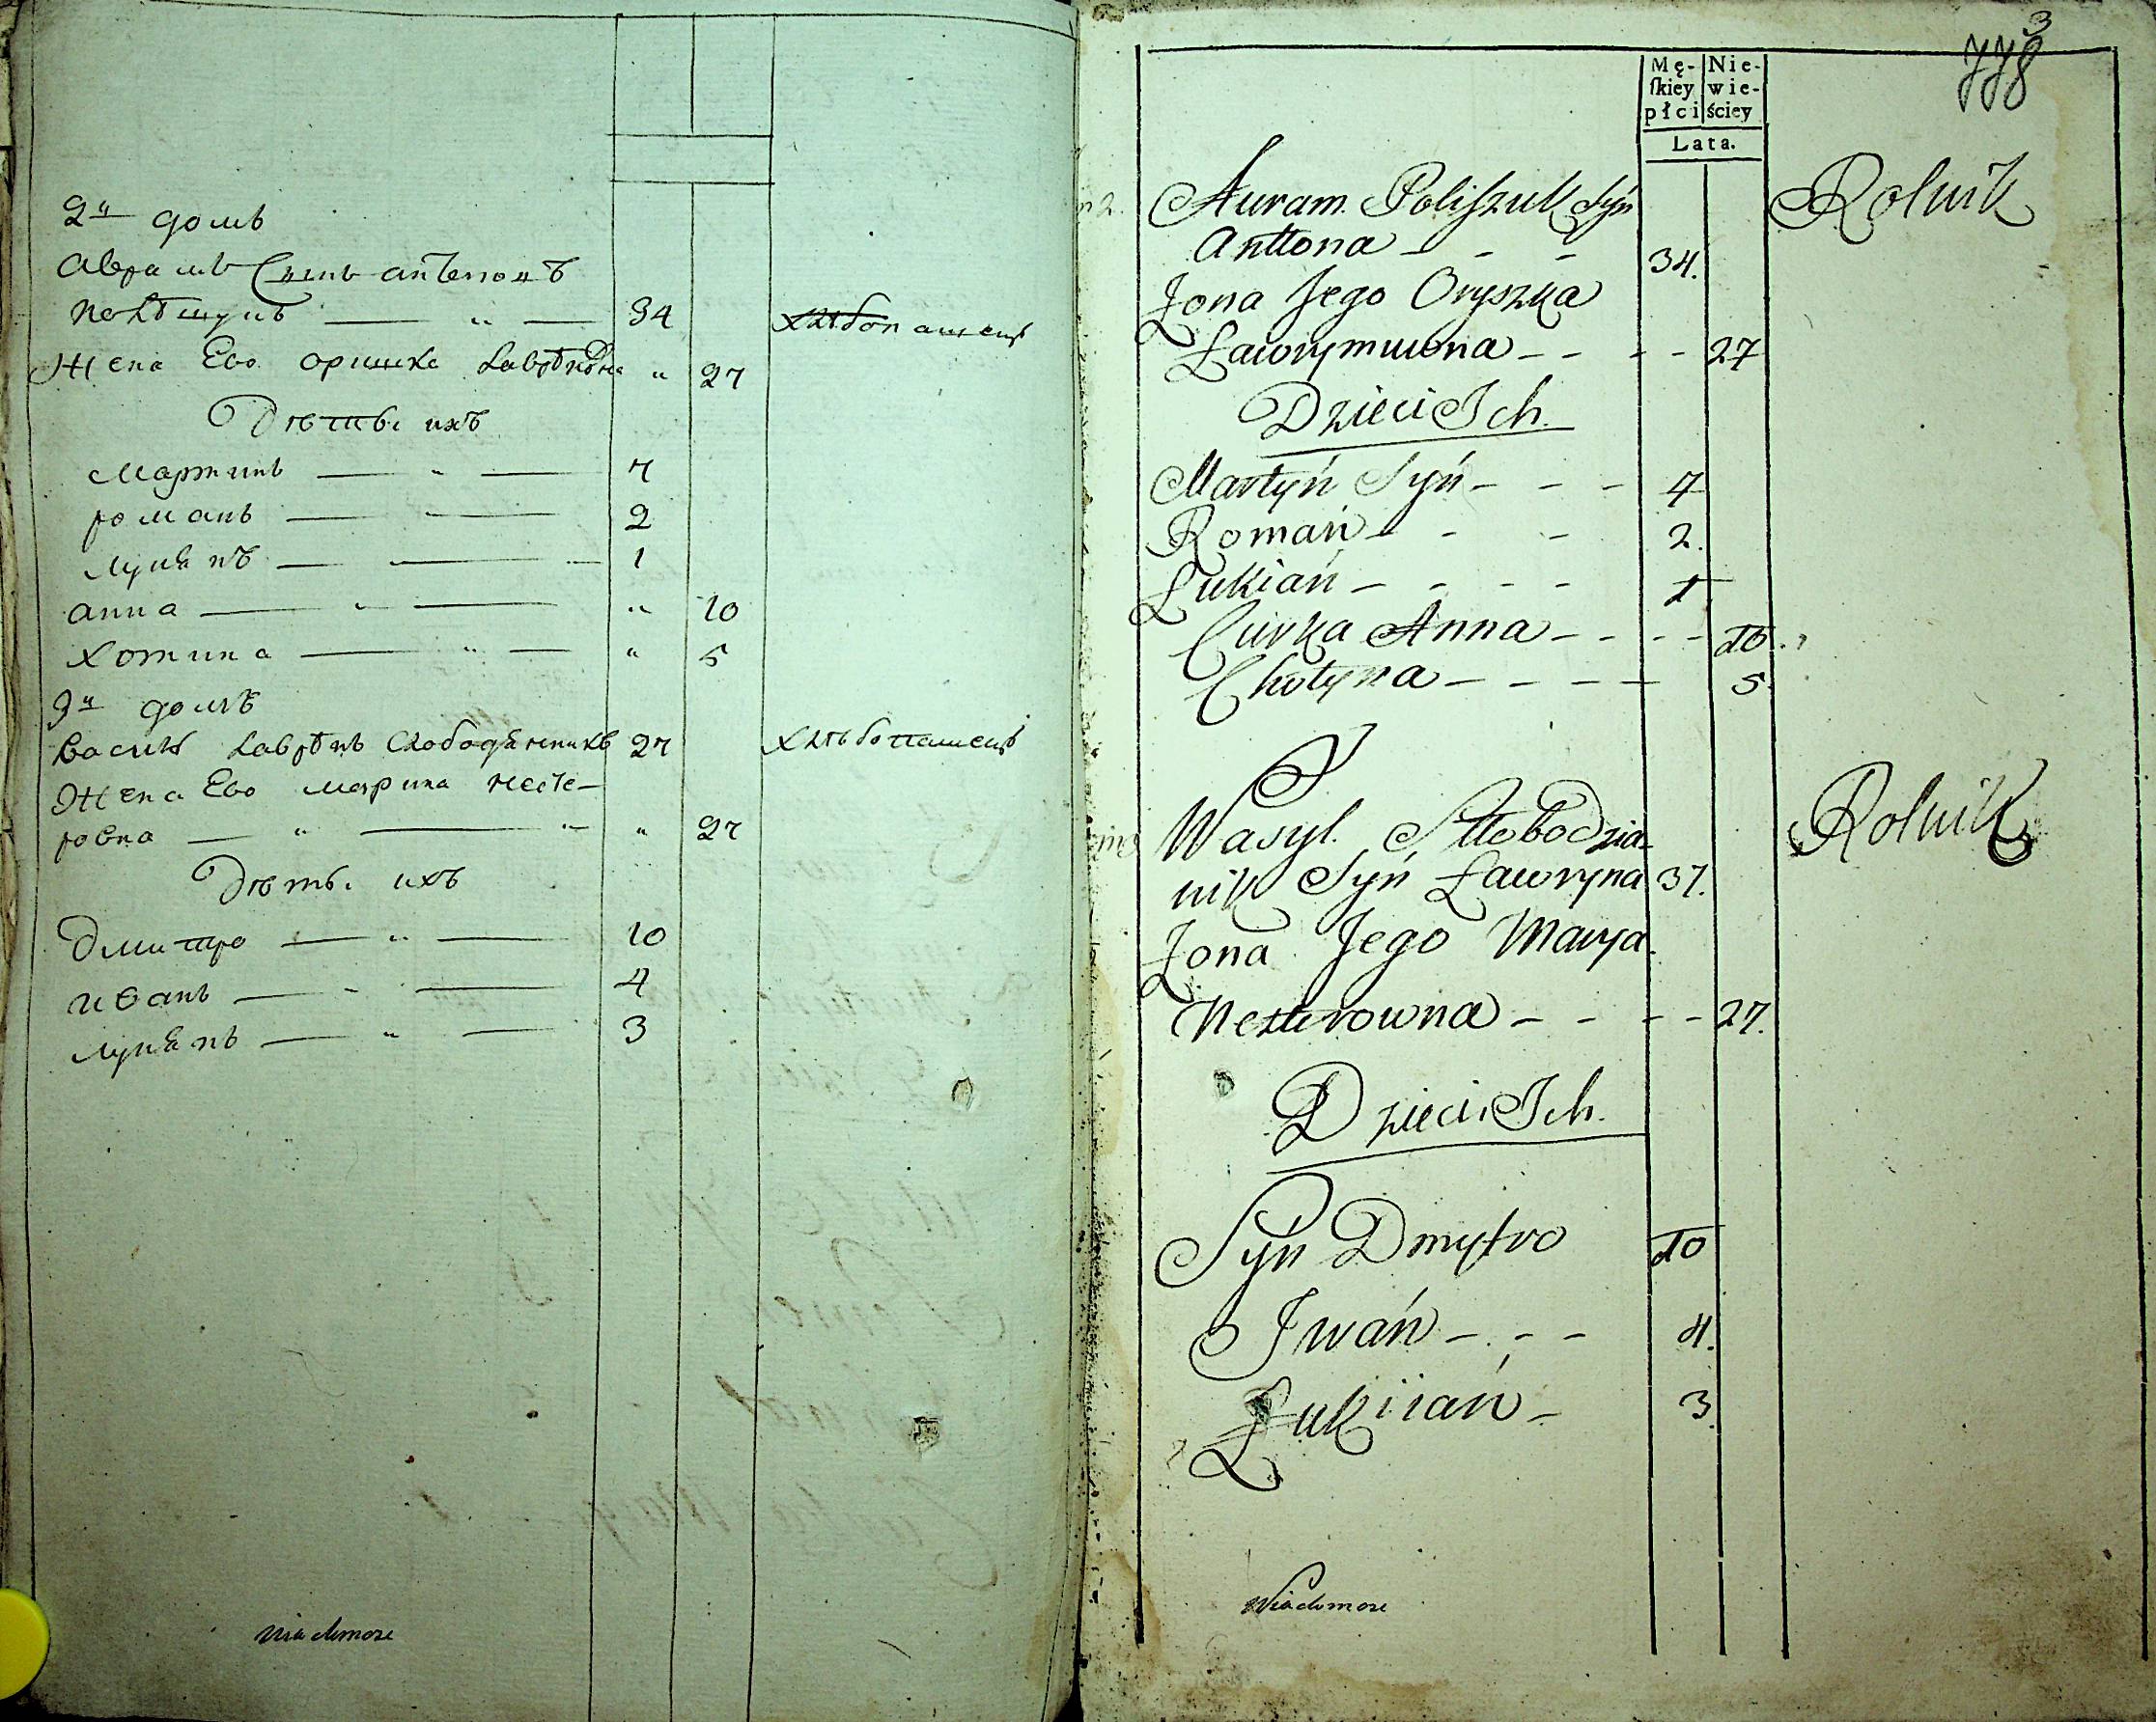 2й домъ
Аврамъ Сынъ антоновъ
полѣщукъ — „ — 34 хлѣбопашецъ
Жена Ево оришка лаврѣновна „ 27
Дѣти ихъ
мартинъ — „ — 7
романъ — — 2
лукянъ — — 1
анна — „ — „ 10
хотина — „ — „ 5
3й домъ
василь лаврѣнъ слободяникъ 27 хлѣбопашецъ
Жена Ево марина несте-
ровна — „ — „ „ 27
Дѣти ихъ
дмитро — „ — 10
иванъ — „ — 4
лукянъ — „ — 3
Wiadomose
3
778
Mę- Nie-
ſkiey wie-
płci ściey
Lata.
Auram Poliszuk Syn Rolnik
Anttona - - - 34.
Żona Jego Oryszka
Ławrynuwna - - - - 27
Dzieci Ich.
Martyń Syń - - - 7
Romań - - - 2.
Łukiań - - - - 1
Curka Anna - - - - 10.
Chotyna - - - - 5.
3
Wasyl Słłobodzia- Rolnik
nik Syń Ławryna 37.
Żona Jego Marya
Nesterowna - - - - 27.
Dzieci Ich.
Syń Dmytro 10
Iwań - - - 4.
Łukiiań - 3.
Wiadomose